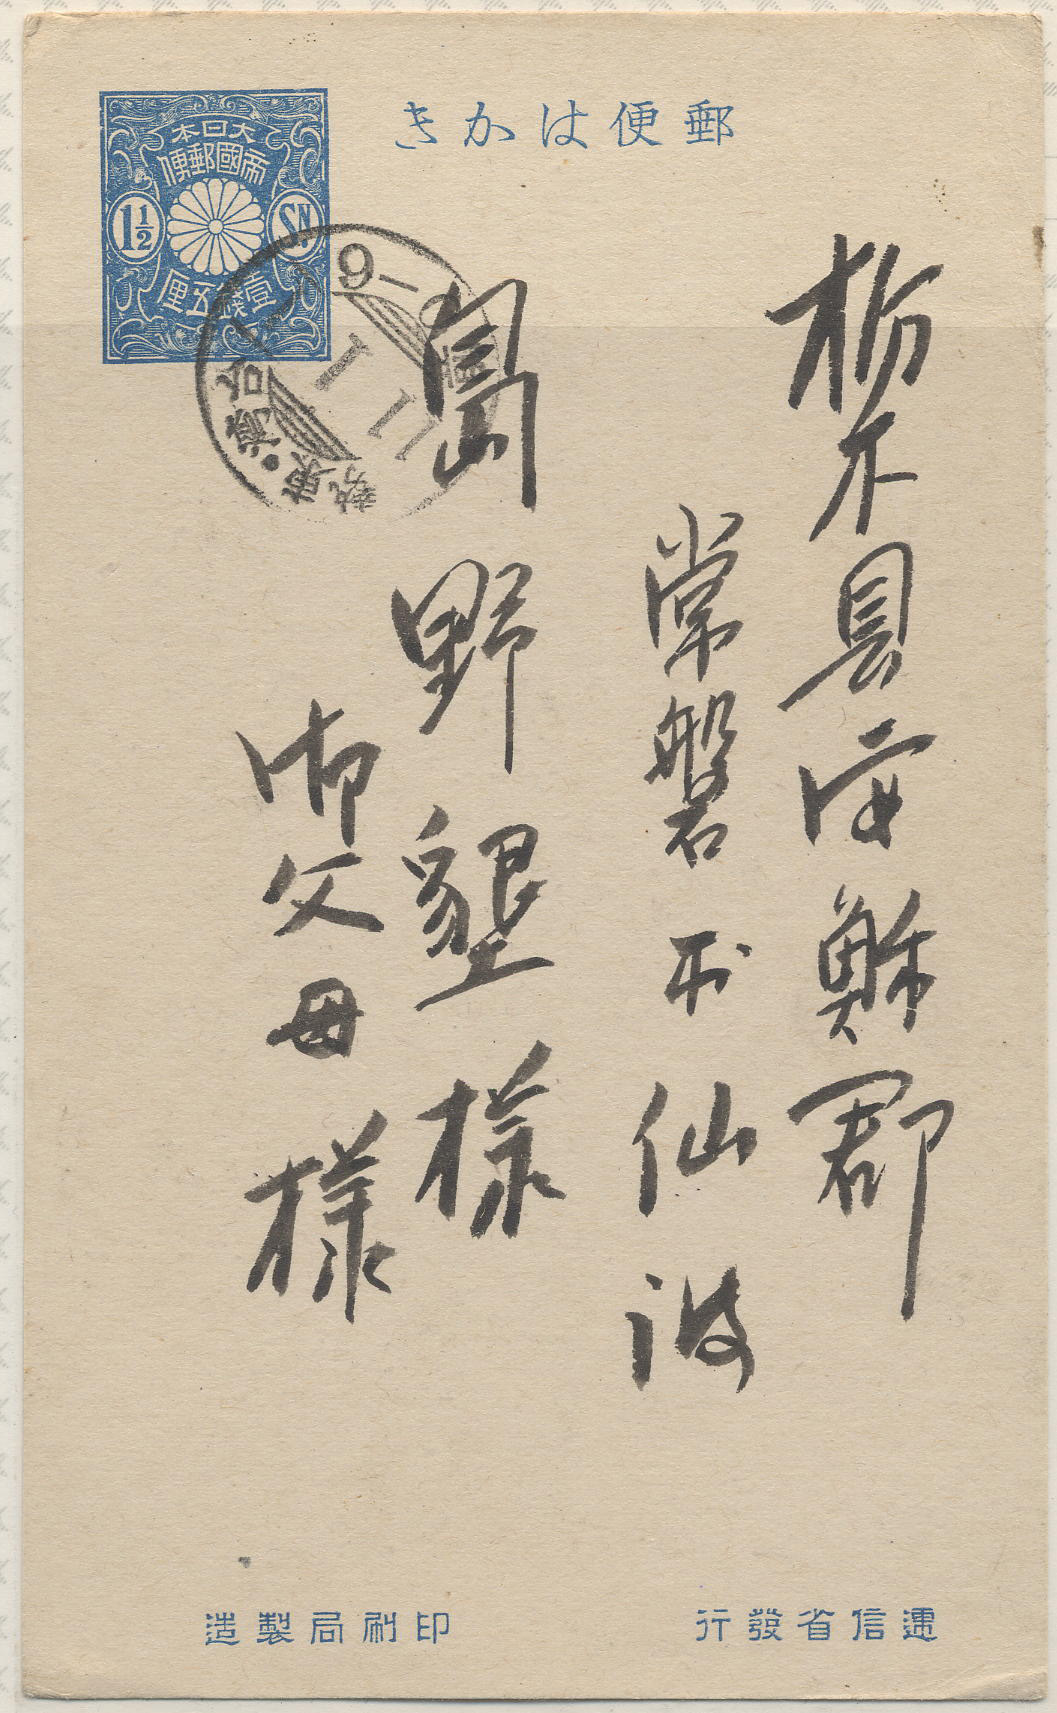 郵便はかき
大日本
帝國郵便
1½ SN.
壹錢五厘
栃木県安蘇郡
常磐村仙波
島野墾様
御父母様
遞信省發行
印刷局製造